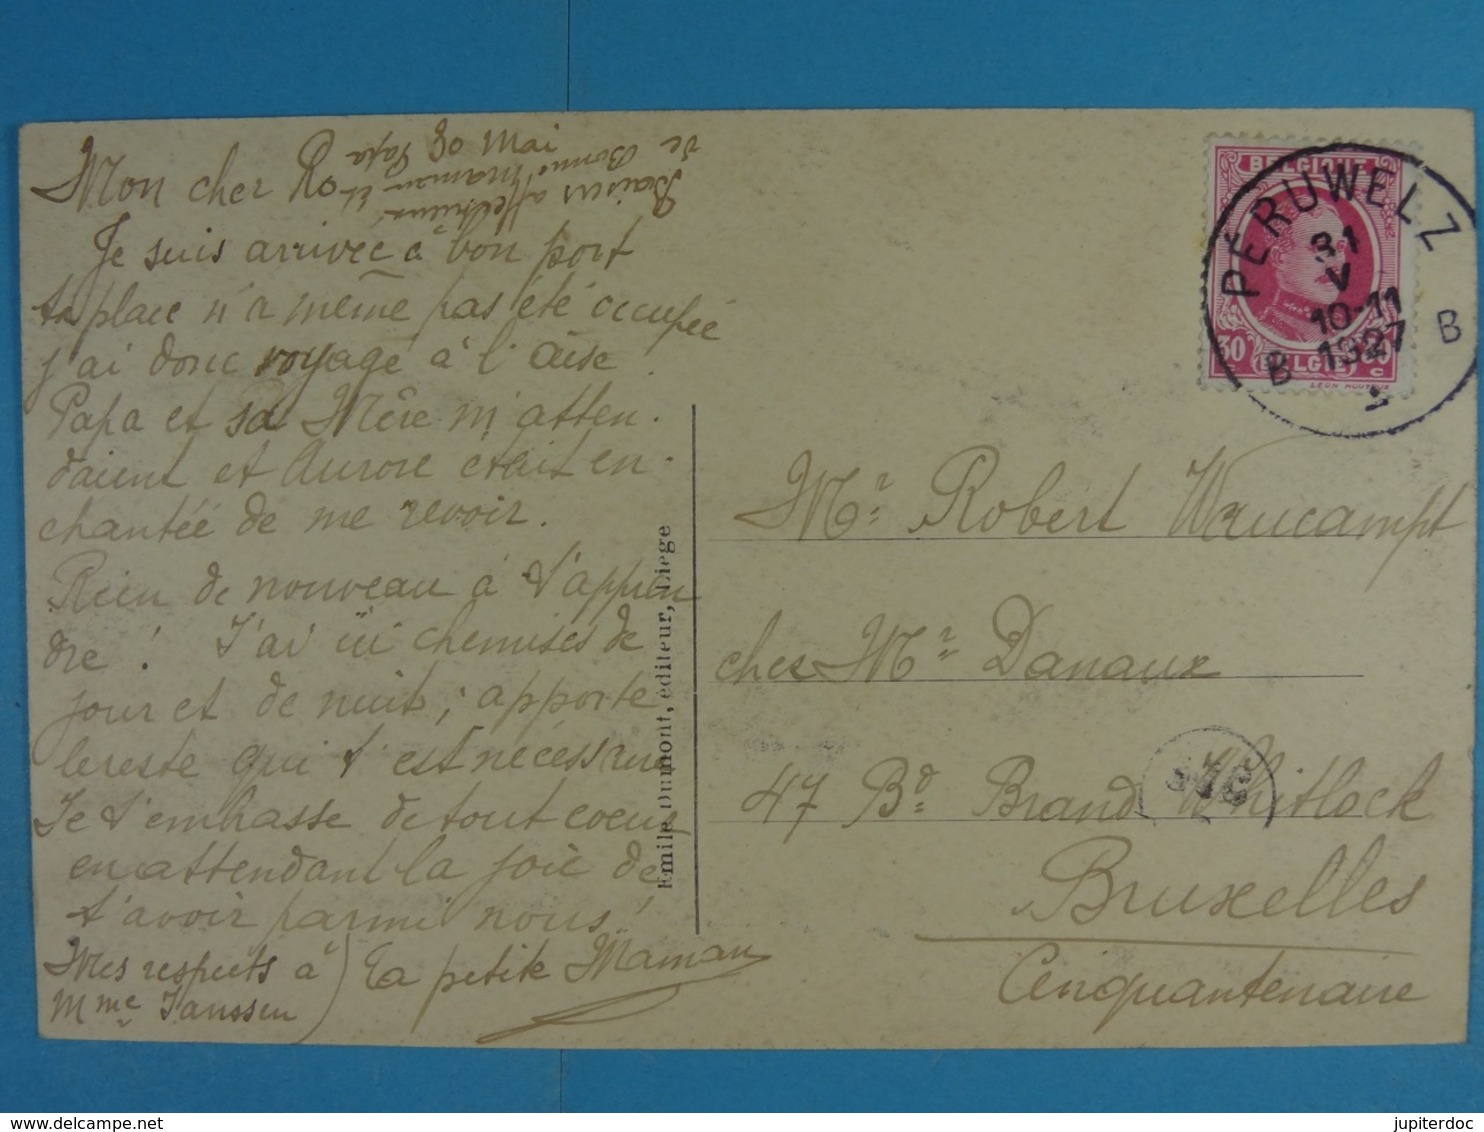 30 Mai
Mon cher Ro
Baisers affectueux
de Bonne maman et
Papa
Je suis arrivée à bon port
ta place n'a même pas été occupée
j'ai donc voyagé à l'aise.
Papa et sa Mère m'atten-
daient et Aurore était en-
chantée de me revoir.
Rien de nouveau à t'appren
dre! J'ai ici chemises de
jour et de nuit; apporte
le reste qui t'est nécessaire
Je t'embrasse de tout coeur
en attendant la joie de
t'avoir parmi nous!
Mes respects à
Mme Janssen
Ta petite Maman
Emile Dumont, éditeur, Liége
BELGIQUE
30 c
BELGIE
LEON HOUYOUX
PÉRUWELZ
31
V
10-11
1927
B B
Mr Robert Waucampt
chez Mr Danaux
47 Bd Brand Whitlock
Bruxelles
Cinquantenaire
delcampe.net
jupiterdoc